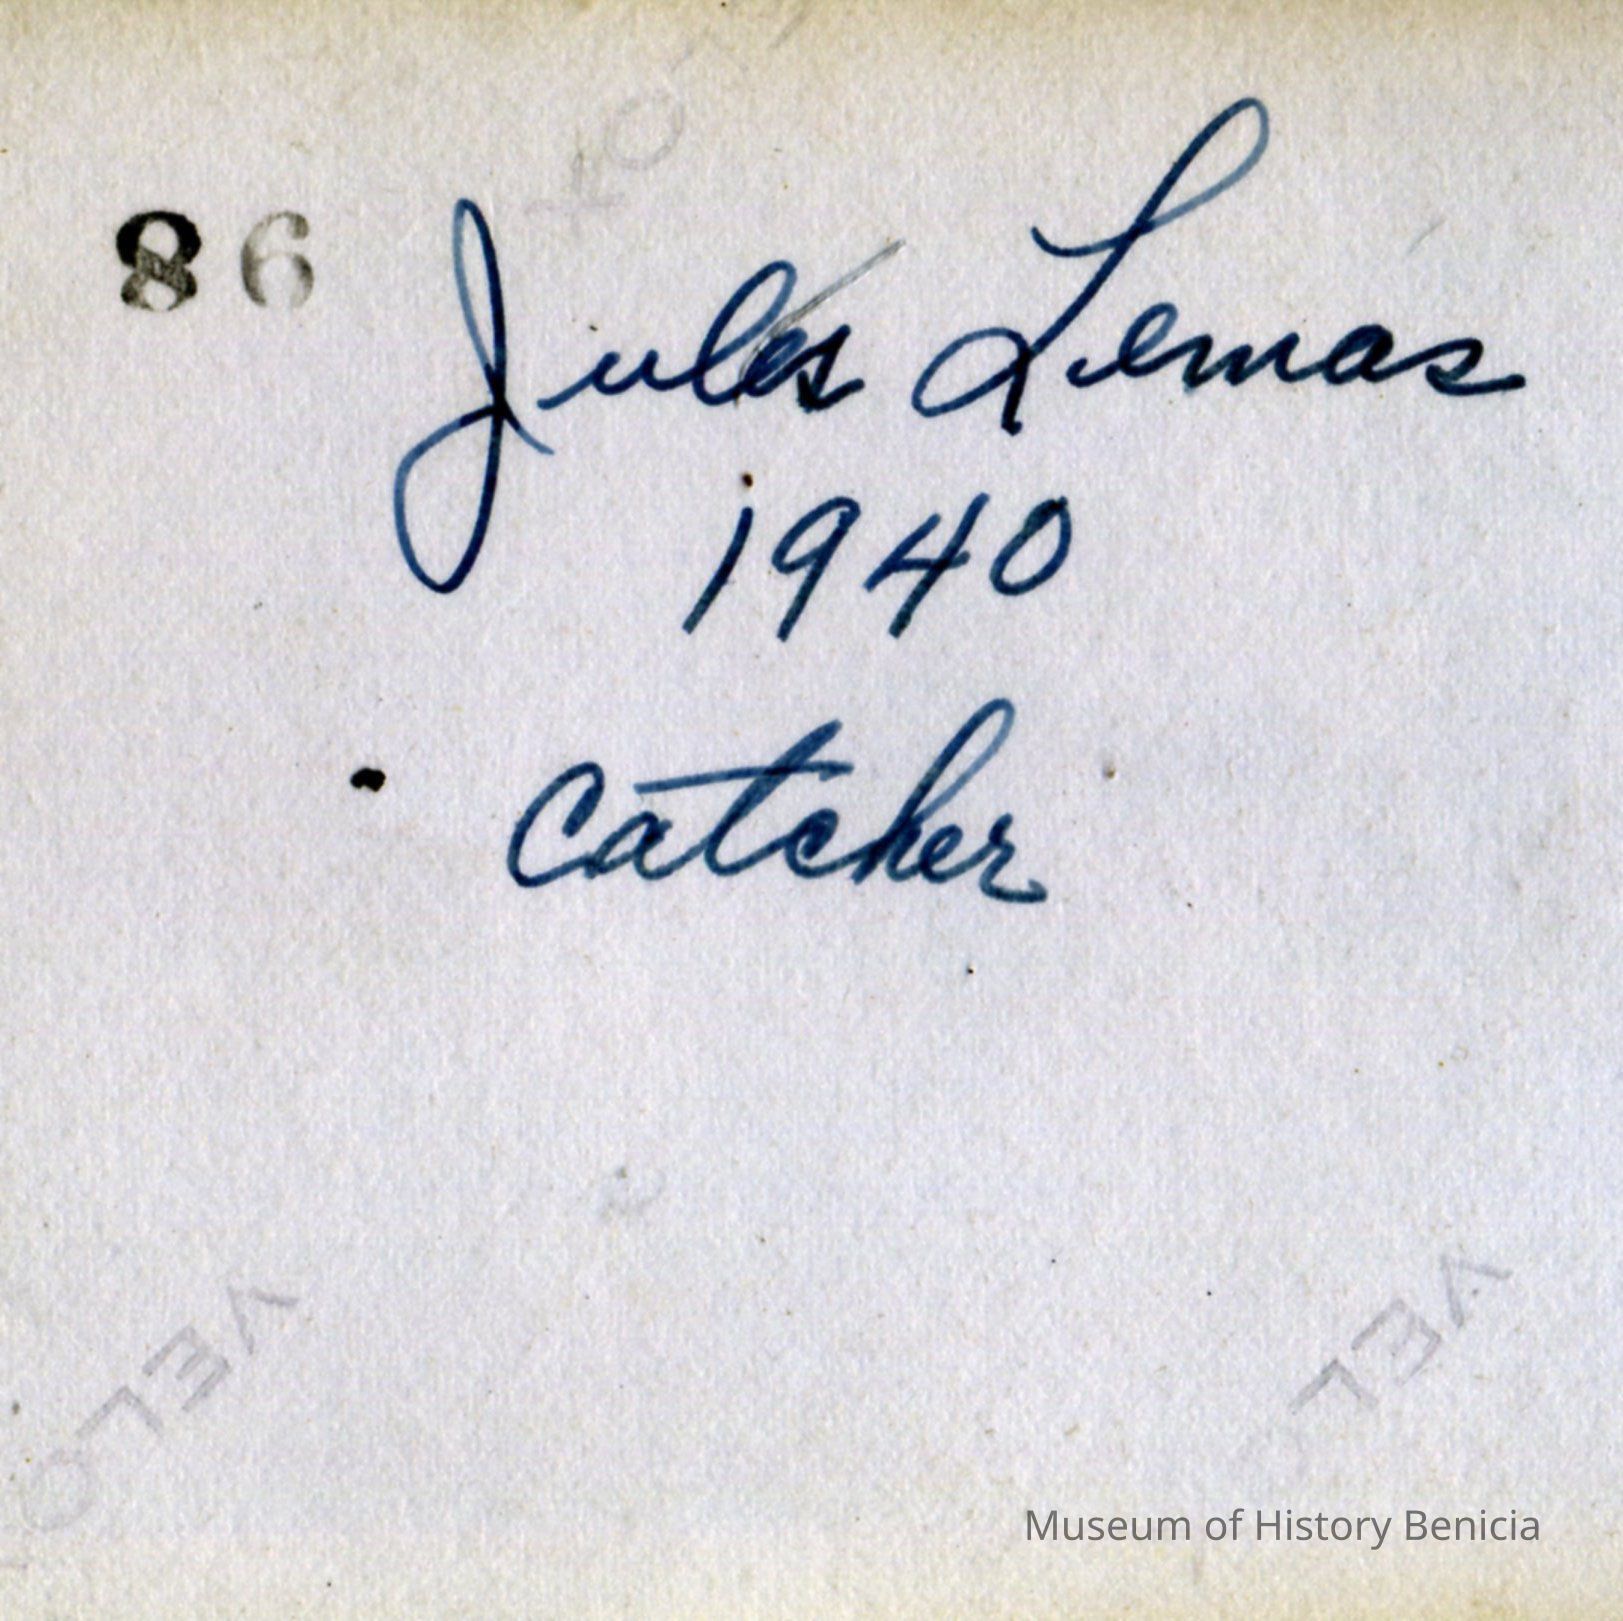 86 Jules Lemas
1940
catcher
VELO
VEL
Museum of History Benicia